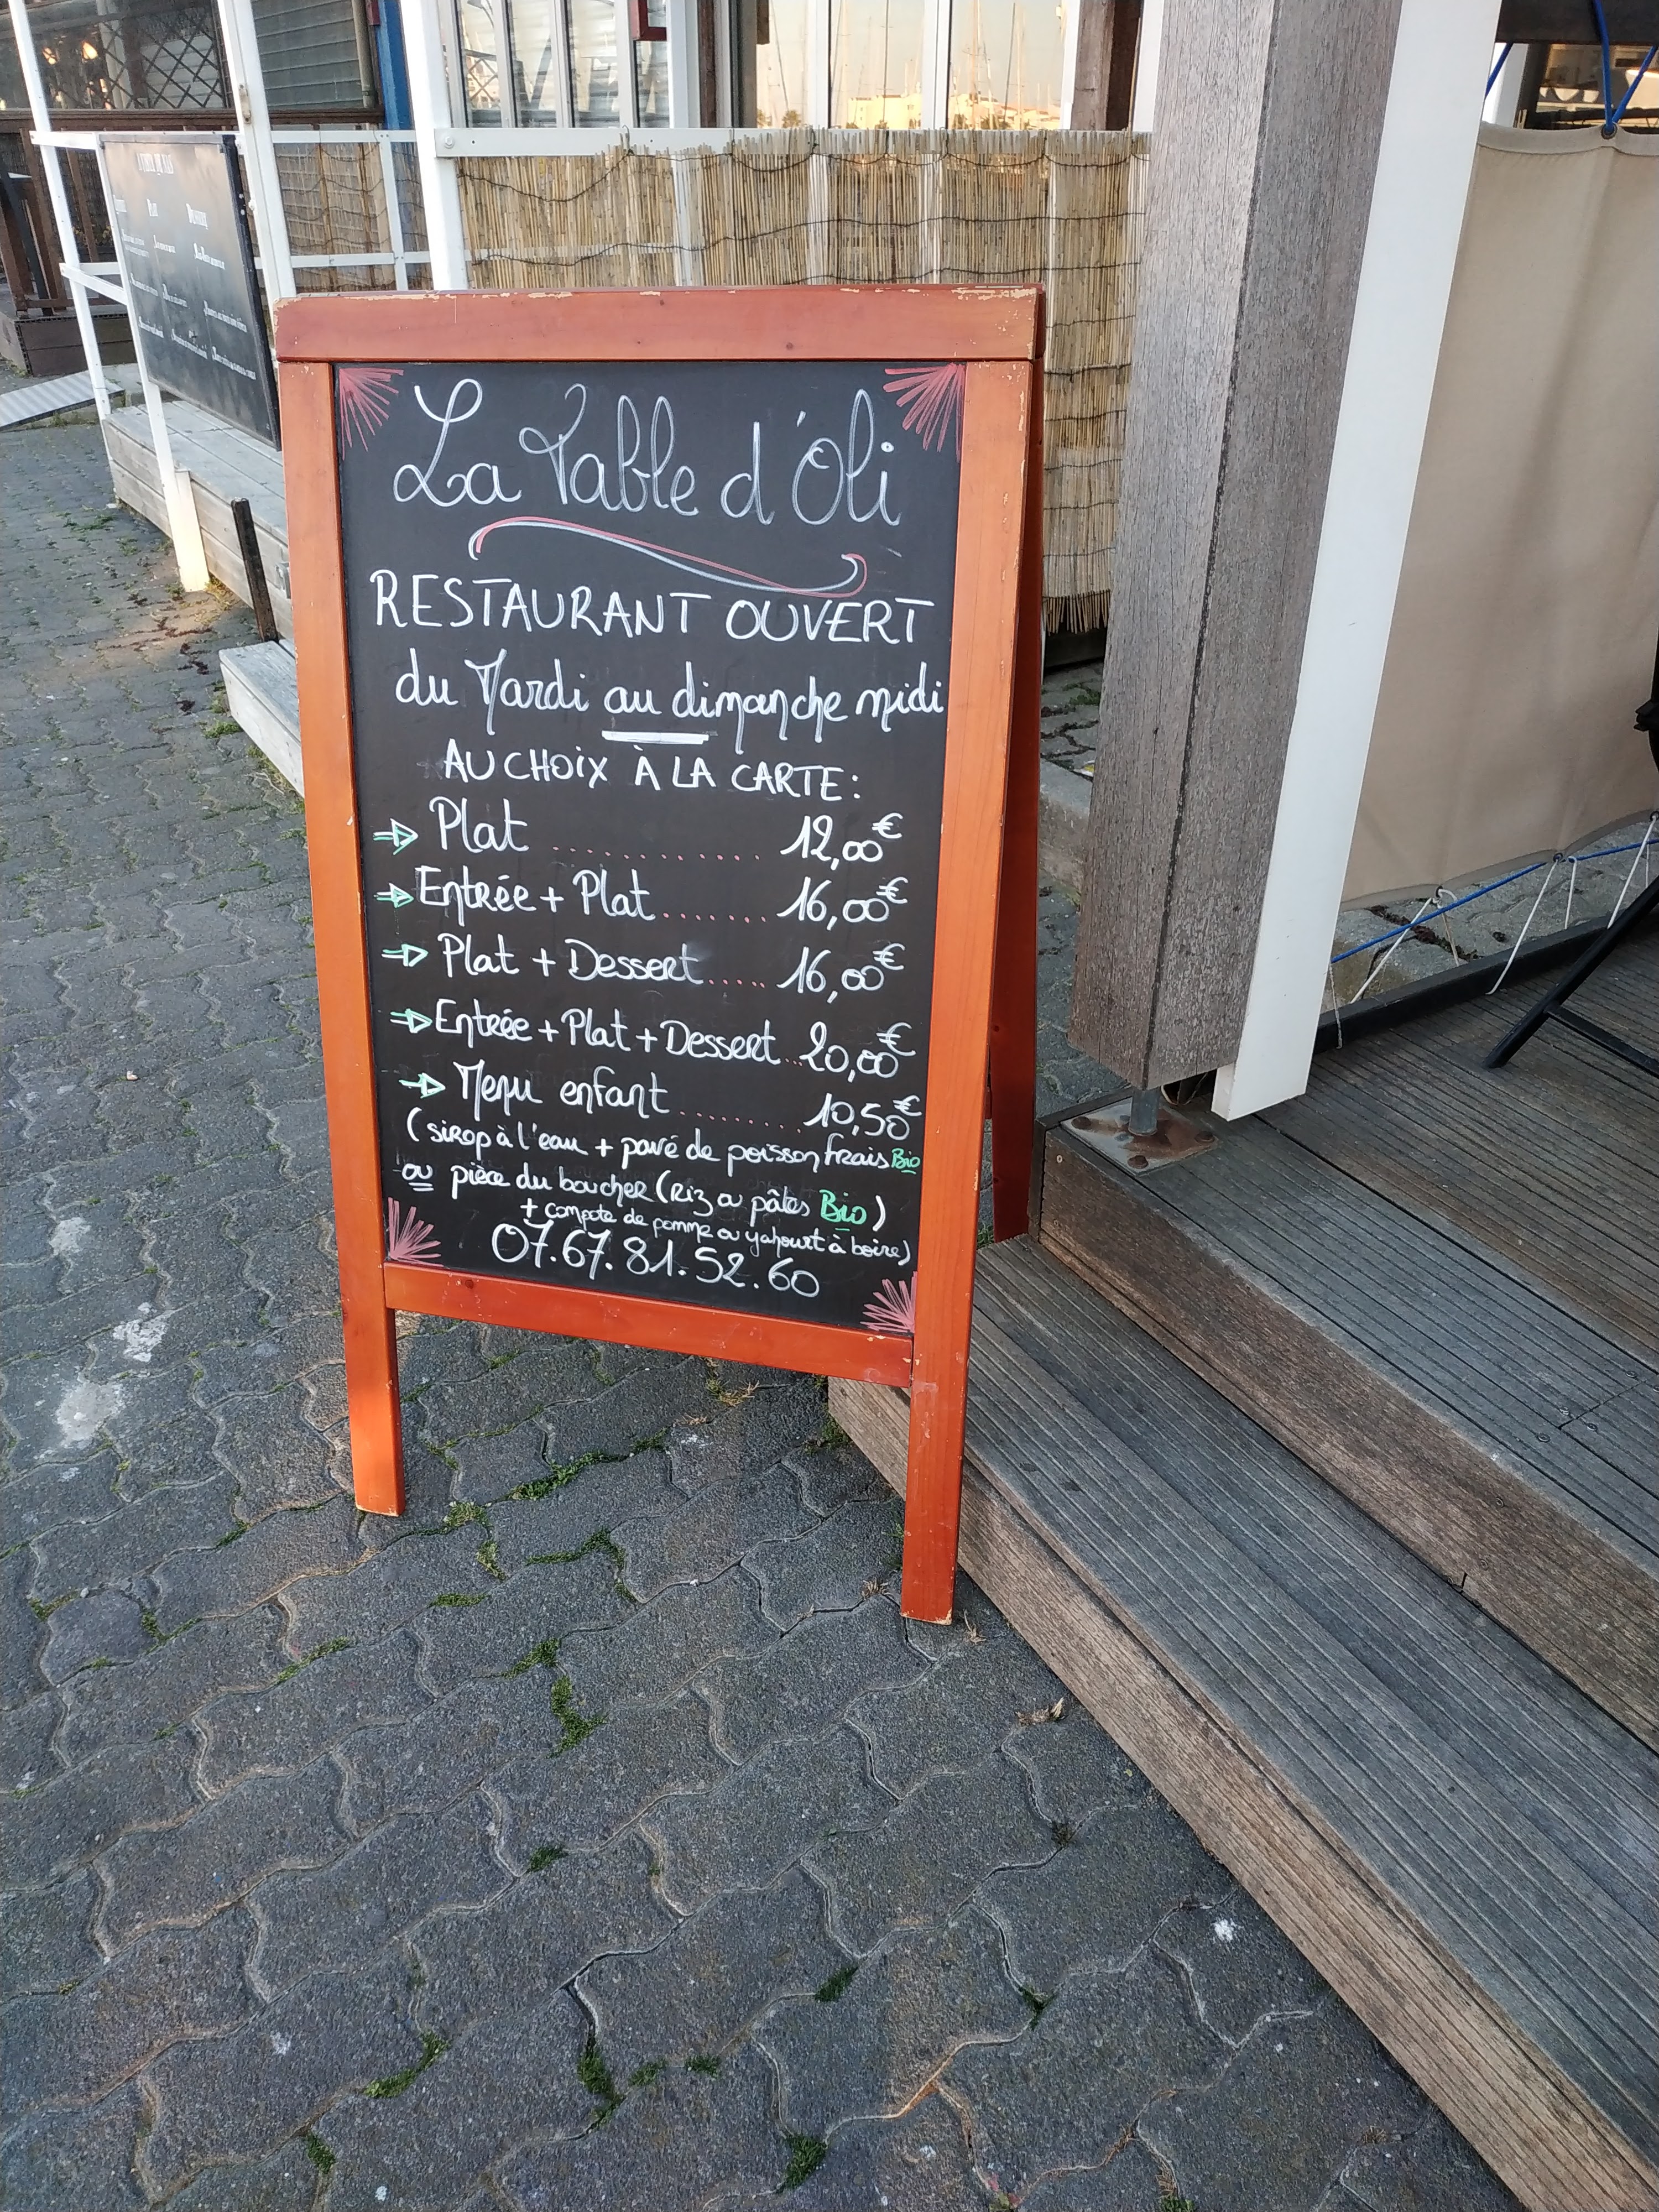 La Table d'Oli
RESTAURANT OUVERT
du Mardi au dimanche midi
AU CHOIX À LA CARTE:
Plat ............. 12,00€
Entrée + Plat ........ 16,00€
Plat + Dessert ..... 16,00€
Entrée + Plat + Dessert .. 20,00€
Menu enfant ......... 10,50€
(sirop à l'eau + pavé de poisson frais Bio
ou pièce du boucher (Riz ou pâtes Bio)
+ compote de pomme ou yahourt à boire)
07.67.81.52.60